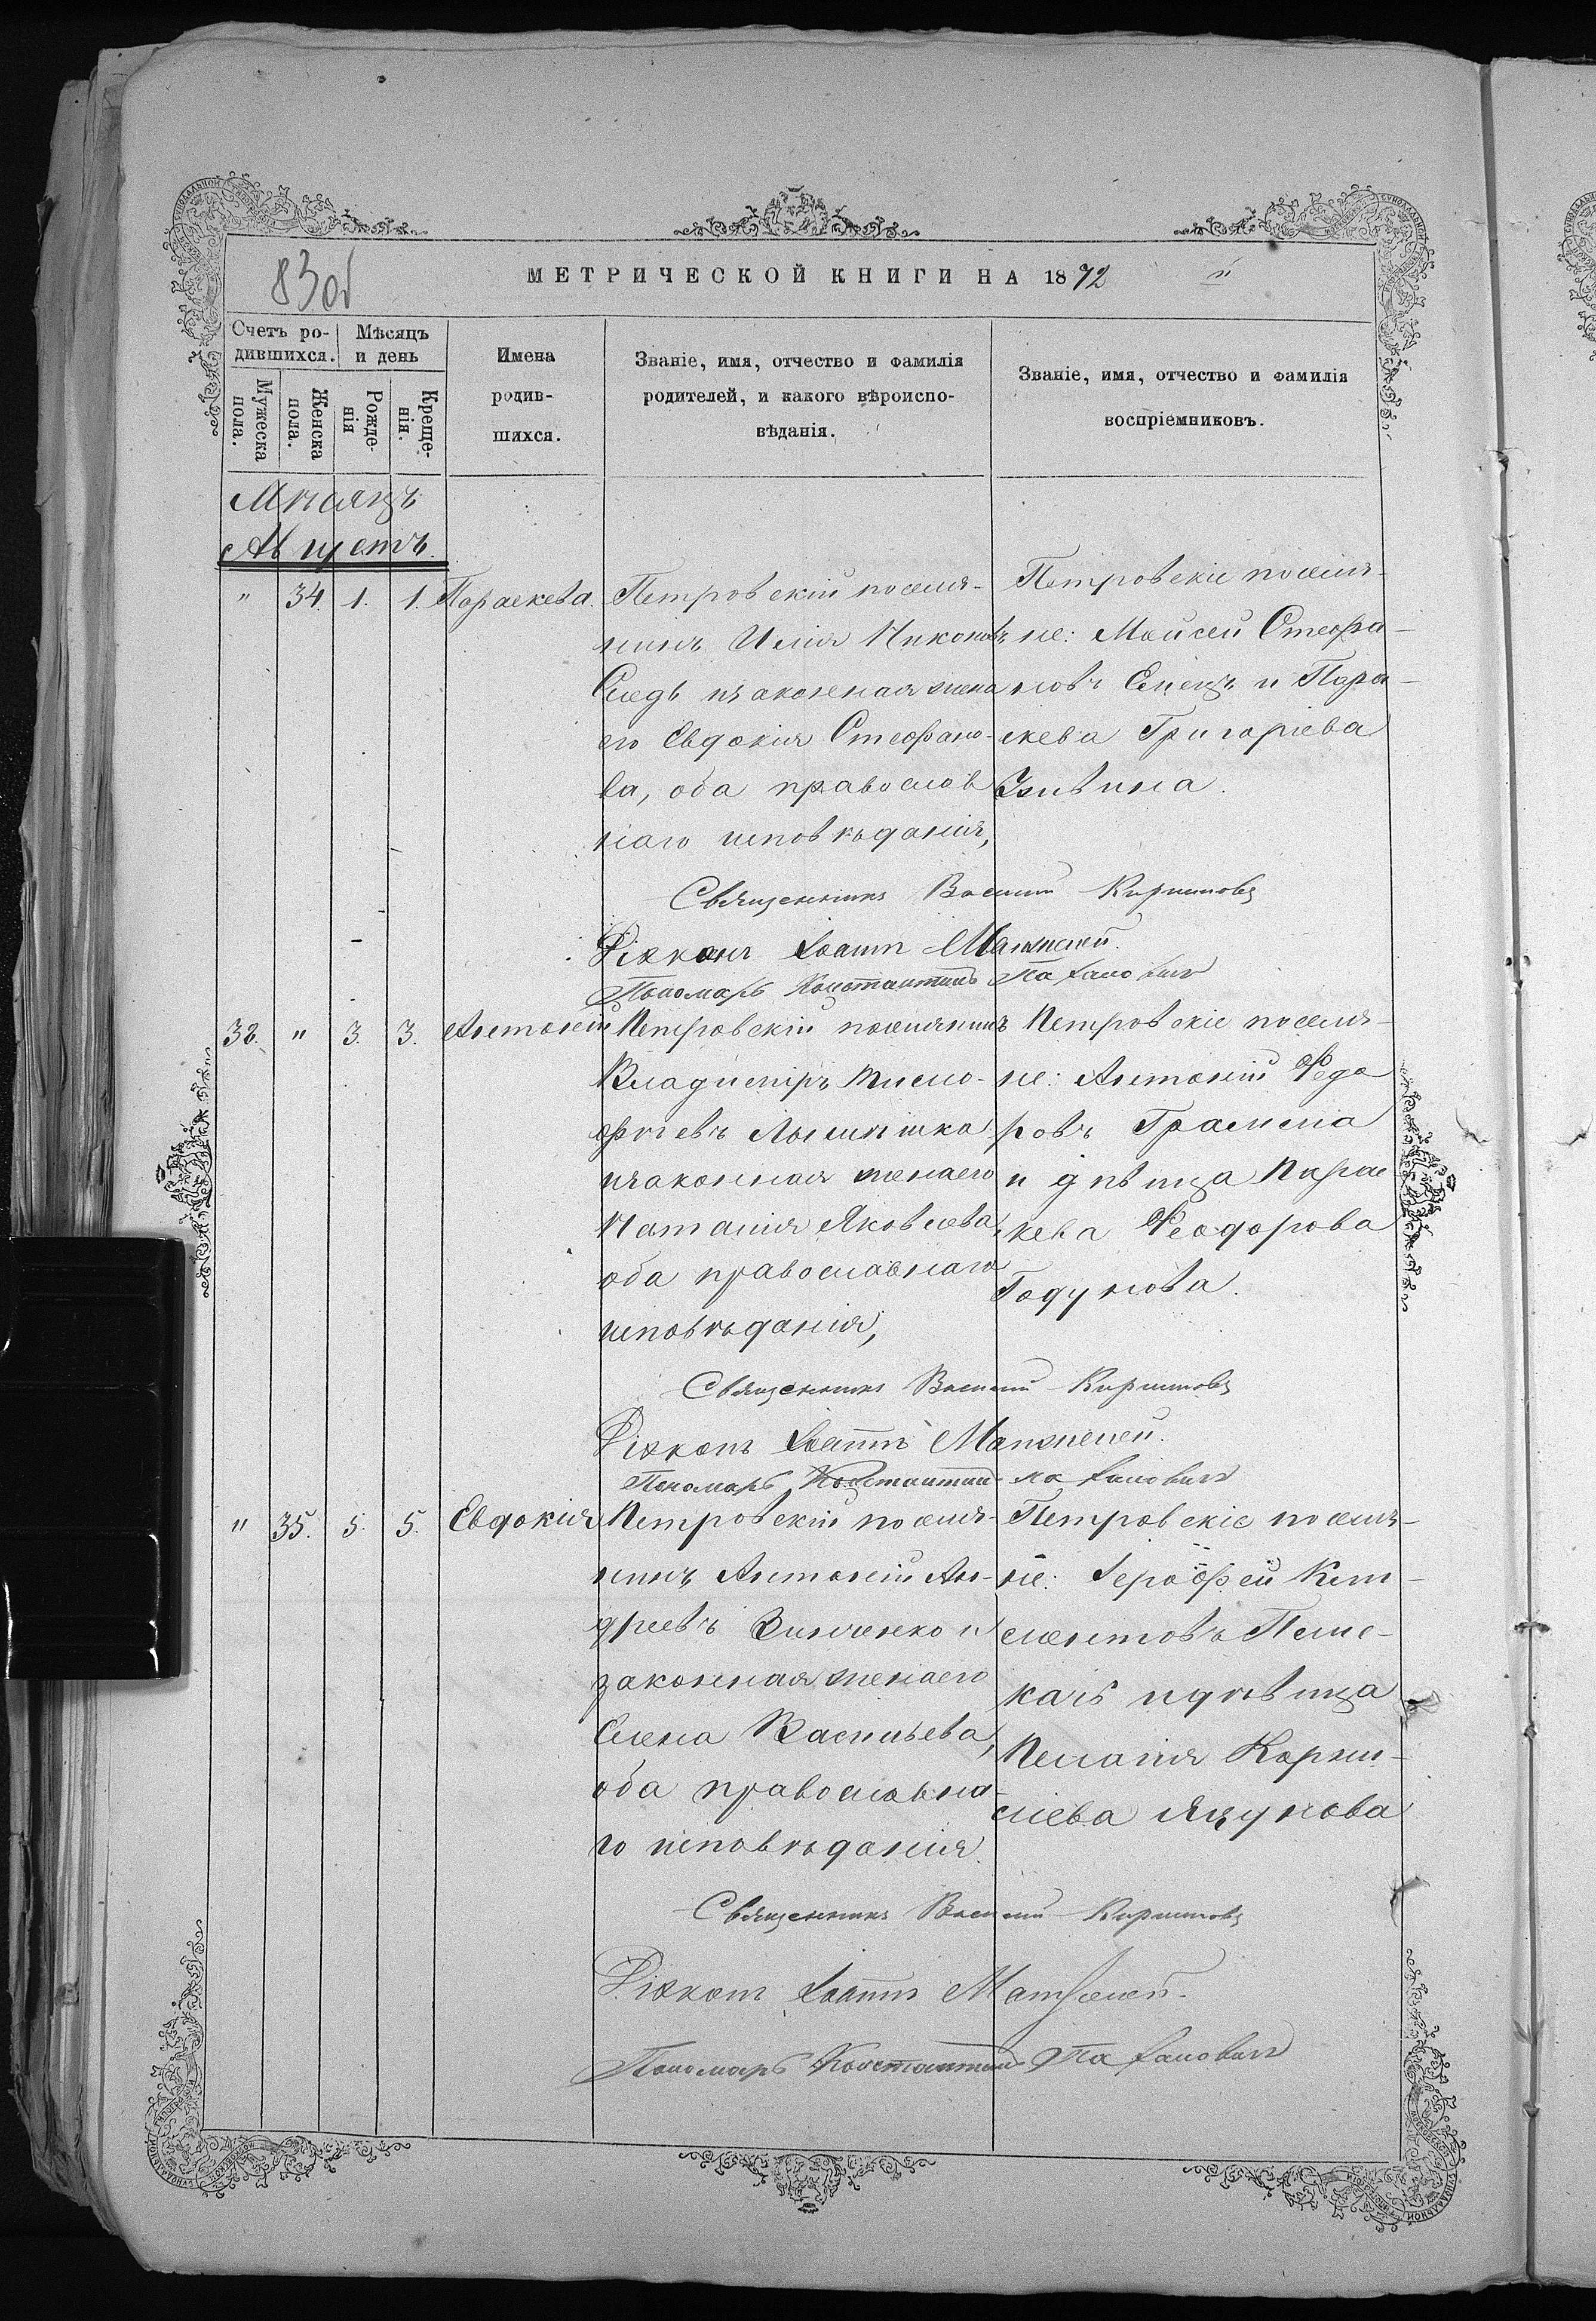 83об
МЕТРИЧЕСКОЙ КНИГИ НА 1872
Счетъ ро-
дившихся.
Мѣсяцъ
и день
Мужеска
пола.
Женска
пола.
Рожде-
нія
Креще-
нія.
Имена
родив-
шихся.
Званіе, имя, отчество и фамилія
родителей, и какого вѣроиспо-
вѣданія.
Званіе, имя, отчество и фамилія
воспріемниковъ.
Мѣсяцъ
Августъ.
" 34. 1. 1. Параскева.
Петровскій поселя-
нинъ Илія Никоновъ
и законная жена
его Евдокія Стефано-
ва, оба православ
наго исповѣданія,
Петровскіе поселя-
не: Моисей Стефа-
новъ Емецъ и Пара-
скева Григоріева
Священникъ Василій Кирилловъ
Діаконъ Іоаннъ
Пономарь Константинъ
38. " 3. 3. Антоній
Петровскій поселянинъ
Владиміръ Тимо-
фѣевъ
и законная жена его
Наталія Яковлева,
оба православнаго
исповѣданія,
Петровскіе поселя-
не: Антоній Федо
ровъ
и дѣвица Парас
кева Феодорова
Годунова.
Священникъ Василій Кирилловъ
Діаконъ Іоаннъ
Пономарь Константинъ
" 35. 5. 5. Евдокія
Петровскій поселя-
нинъ Антоній Ан-
дреевъ Зинченко и
законная жена его
Елена Васильева,
оба православна-
го исповѣданія.
Петровскіе поселя-
не: Ерофей Кли-
ментовъ
и дѣвица
Пелагія Корни-
ліева Яцунова
Священникъ Василій Кирилловъ
Діаконъ Іоаннъ
Пономарь Константинъ